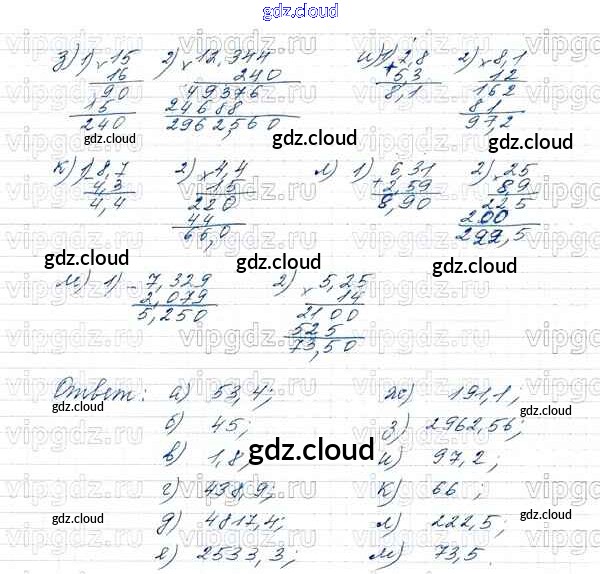 gdz.cloud
з) 1) × 15 2) × 12,344 и) 1) + 2,8 2) × 8,1
16 240 5,3 12
90 49376 8,1 162
15 24688 81
240 2962,560 97,2
gdz.cloud gdz.cloud
к) 1) - 8,7 2) × 4,4 л) 1) + 6,31 2) × 25
4,3 15 2,59 8,9
4,4 220 8,90 225
44 200
66,0 222,5
gdz.cloud gdz.cloud gdz.cloud
м) 1) - 7,329 2) × 5,25
2,079 14
5,250 2100
525
73,50
Ответ: а) 53,4; ж) 191,1;
gdz.cloud б) 45; з) 2962,56; gdz.cloud
в) 1,8; gdz.cloud и) 97,2;
г) 438,9; к) 66;
gdz.cloud д) 4817,4; л) 222,5; gdz.cloud
е) 2533,3; м) 73,5.
vipgdz.ru